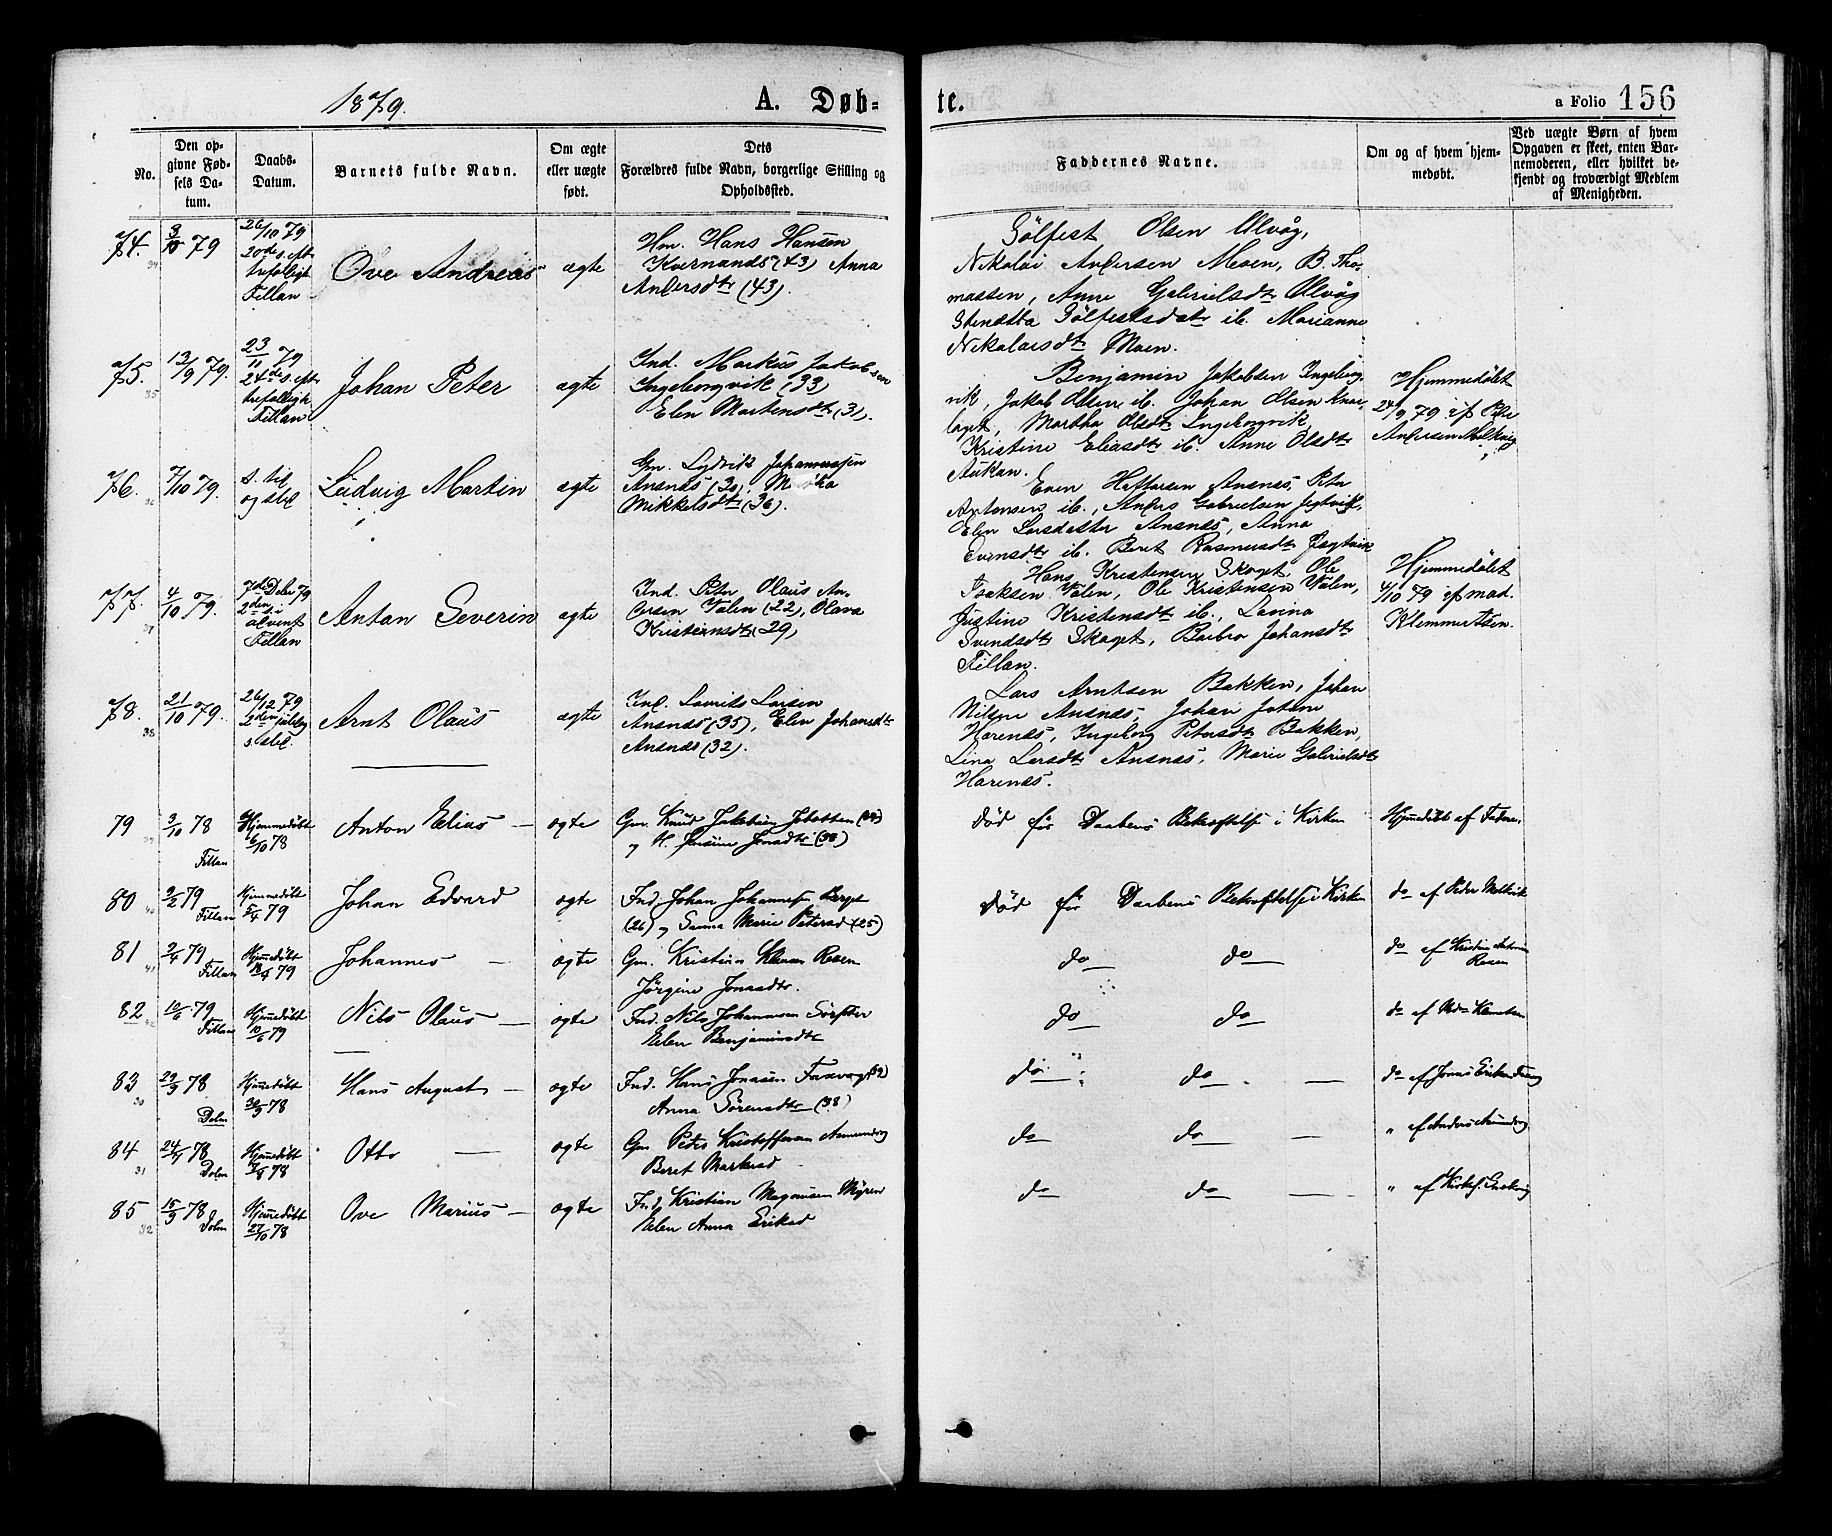 1879.
A. Døb-
te.
a Folio 156
No.
Den op-
givne Fød-
sels Da-
tum.
Daabs-
Datum.
Barnets fulde Navn.
Om ægte
eller uægte
født.
Dets
Forældres fulde Navn, borgerlige Stilling og
Opholdssted.
Faddernes Navne.
Om og af hvem hjem-
medøbt.
Ved uægte Børn af hvem
Opgaven er skeet, enten Bar-
nemoderen, eller hvilket be-
kjendt og troværdigt Medlem
af Menigheden.
74.
3/10 79
26/10 79
20de s. eft.
trefoldigh
Fillan
Ove Andreas
ægte
Hm. Hans Hansen
Kvernanes (43) Anna
Andersdtr (43).
Sölfest Olsen Ulvåg,
Nikolai Andersen Moen, B. Tho-
massen, Anne Gabrielsdtr Ulvåg
Sölfestsdatr ib. Marianne
Nikolaisdtr Moen.
75.
13/9 79.
23/11 79
24de s. eft.
trefoldigh
Fillan
Johan Peter
ægte
Ind. Markus Jakobsen
Ingeborgvik (33)
Elen Martensdtr (31).
Benjamin Jakobsen Ingeborg-
vik, Jakob Olsen ib. Johan Olsen Knar-
laget, Martha Olsdtr Ingeborgvik,
Kristine Eliasdtr ib. Anne Olsdtr
Aukan.
Hjemmedøbt
24/9 79 af Peter
Andersen
76.
7/10 79.
s. til
og sted
Ludvig Martin
ægte
Gm. Lydvik Johannessen
Ansnes (30),
Mikkelsdtr (36).
Even Ansnes, Peter
Antonsen ib., Anders Gabrielsen Jegtvik,
Elen Larsdatter Ansnes, Anna
Evensdtr ib. Beret Rasmusdtr Jægtvik
77.
4/10 79.
7de Debr 79
2den s. i
advent
Fillan
Anton Severin
ægte
Ind. Peter Olaus An-
dersen Valen (22), Olava
Kristensdtr (29)
Hans Kristensen Skaget, Ole
Isaksen Valen, Ole Kristensen Valen,
Justine Kristensdtr ib., Lavina
Svendsdtr Skaget, Barbro Johansdtr
Fillan.
Hjemmedøbt
4/10 79 af mad.
Klemmetsen.
78.
21/10 79.
26/12 79
2den juledag
s. sted.
Arnt Olaus
ægte
Ind. Laurits Larsen
Ansnes (35), Elen Johansdtr
Ansnes (32).
Lars Arntsen Bakken, Johan
Nilsen Ansnes, Johan Johsen
Havnes, Ingeborg Petersdtr Bakken,
Lina Larsdtr Ansnes, Marie Gabrielsdtr
Havnes.
79
3/10 78
Fillan
Hjemmedøbt
6/10 78
Anton Elias
ægte
Gm. Knud Jakobsen
og H. Jonsdtr (38)
død før Daabens Bekræftelse i Kirken
Hjmdøbt af Faderen
80
9/2 79
Fillan
Hjemmedøbt
5/4 79
Johan Edvard
ægte
Ind. Johan Johannes.
(26) og Sanna Marie Petersd (25)
død før Daabens Bekræftelse i Kirken
do af Peder
81
2/4 79
Fillan
Hjmedøbt
79
Johannes
ægte
Gm. Kristian Rosen
Jørgine Jonsdtr.
do do
do af Kristine
Rosen
82
10/6 79
Fillan
Hjmedøbt
10/6 79
Nils Olaus
ægte
Ind. Nils Johannesen
Elen Benjaminsdtr
do do
do af
83
29/9 78
Dolm
Hjmedøbt
30/9 78
Hans August
ægte
Ind. Hans Jonasen
Anna Sörensdtr (38)
do do
do af Jonas
84
24/7 78
Dolm
Hjmedøbt
78
Otto
ægte
Gm Peter Kristoffersen
Beret Markusd
do do
" af Anders
85
15/9 78
Dolm
Hjmedøbt
27/10 78
Ove Marius
ægte
Ind Kristian Magnusen Myren
Elen Anna Eriksd
do do
" af